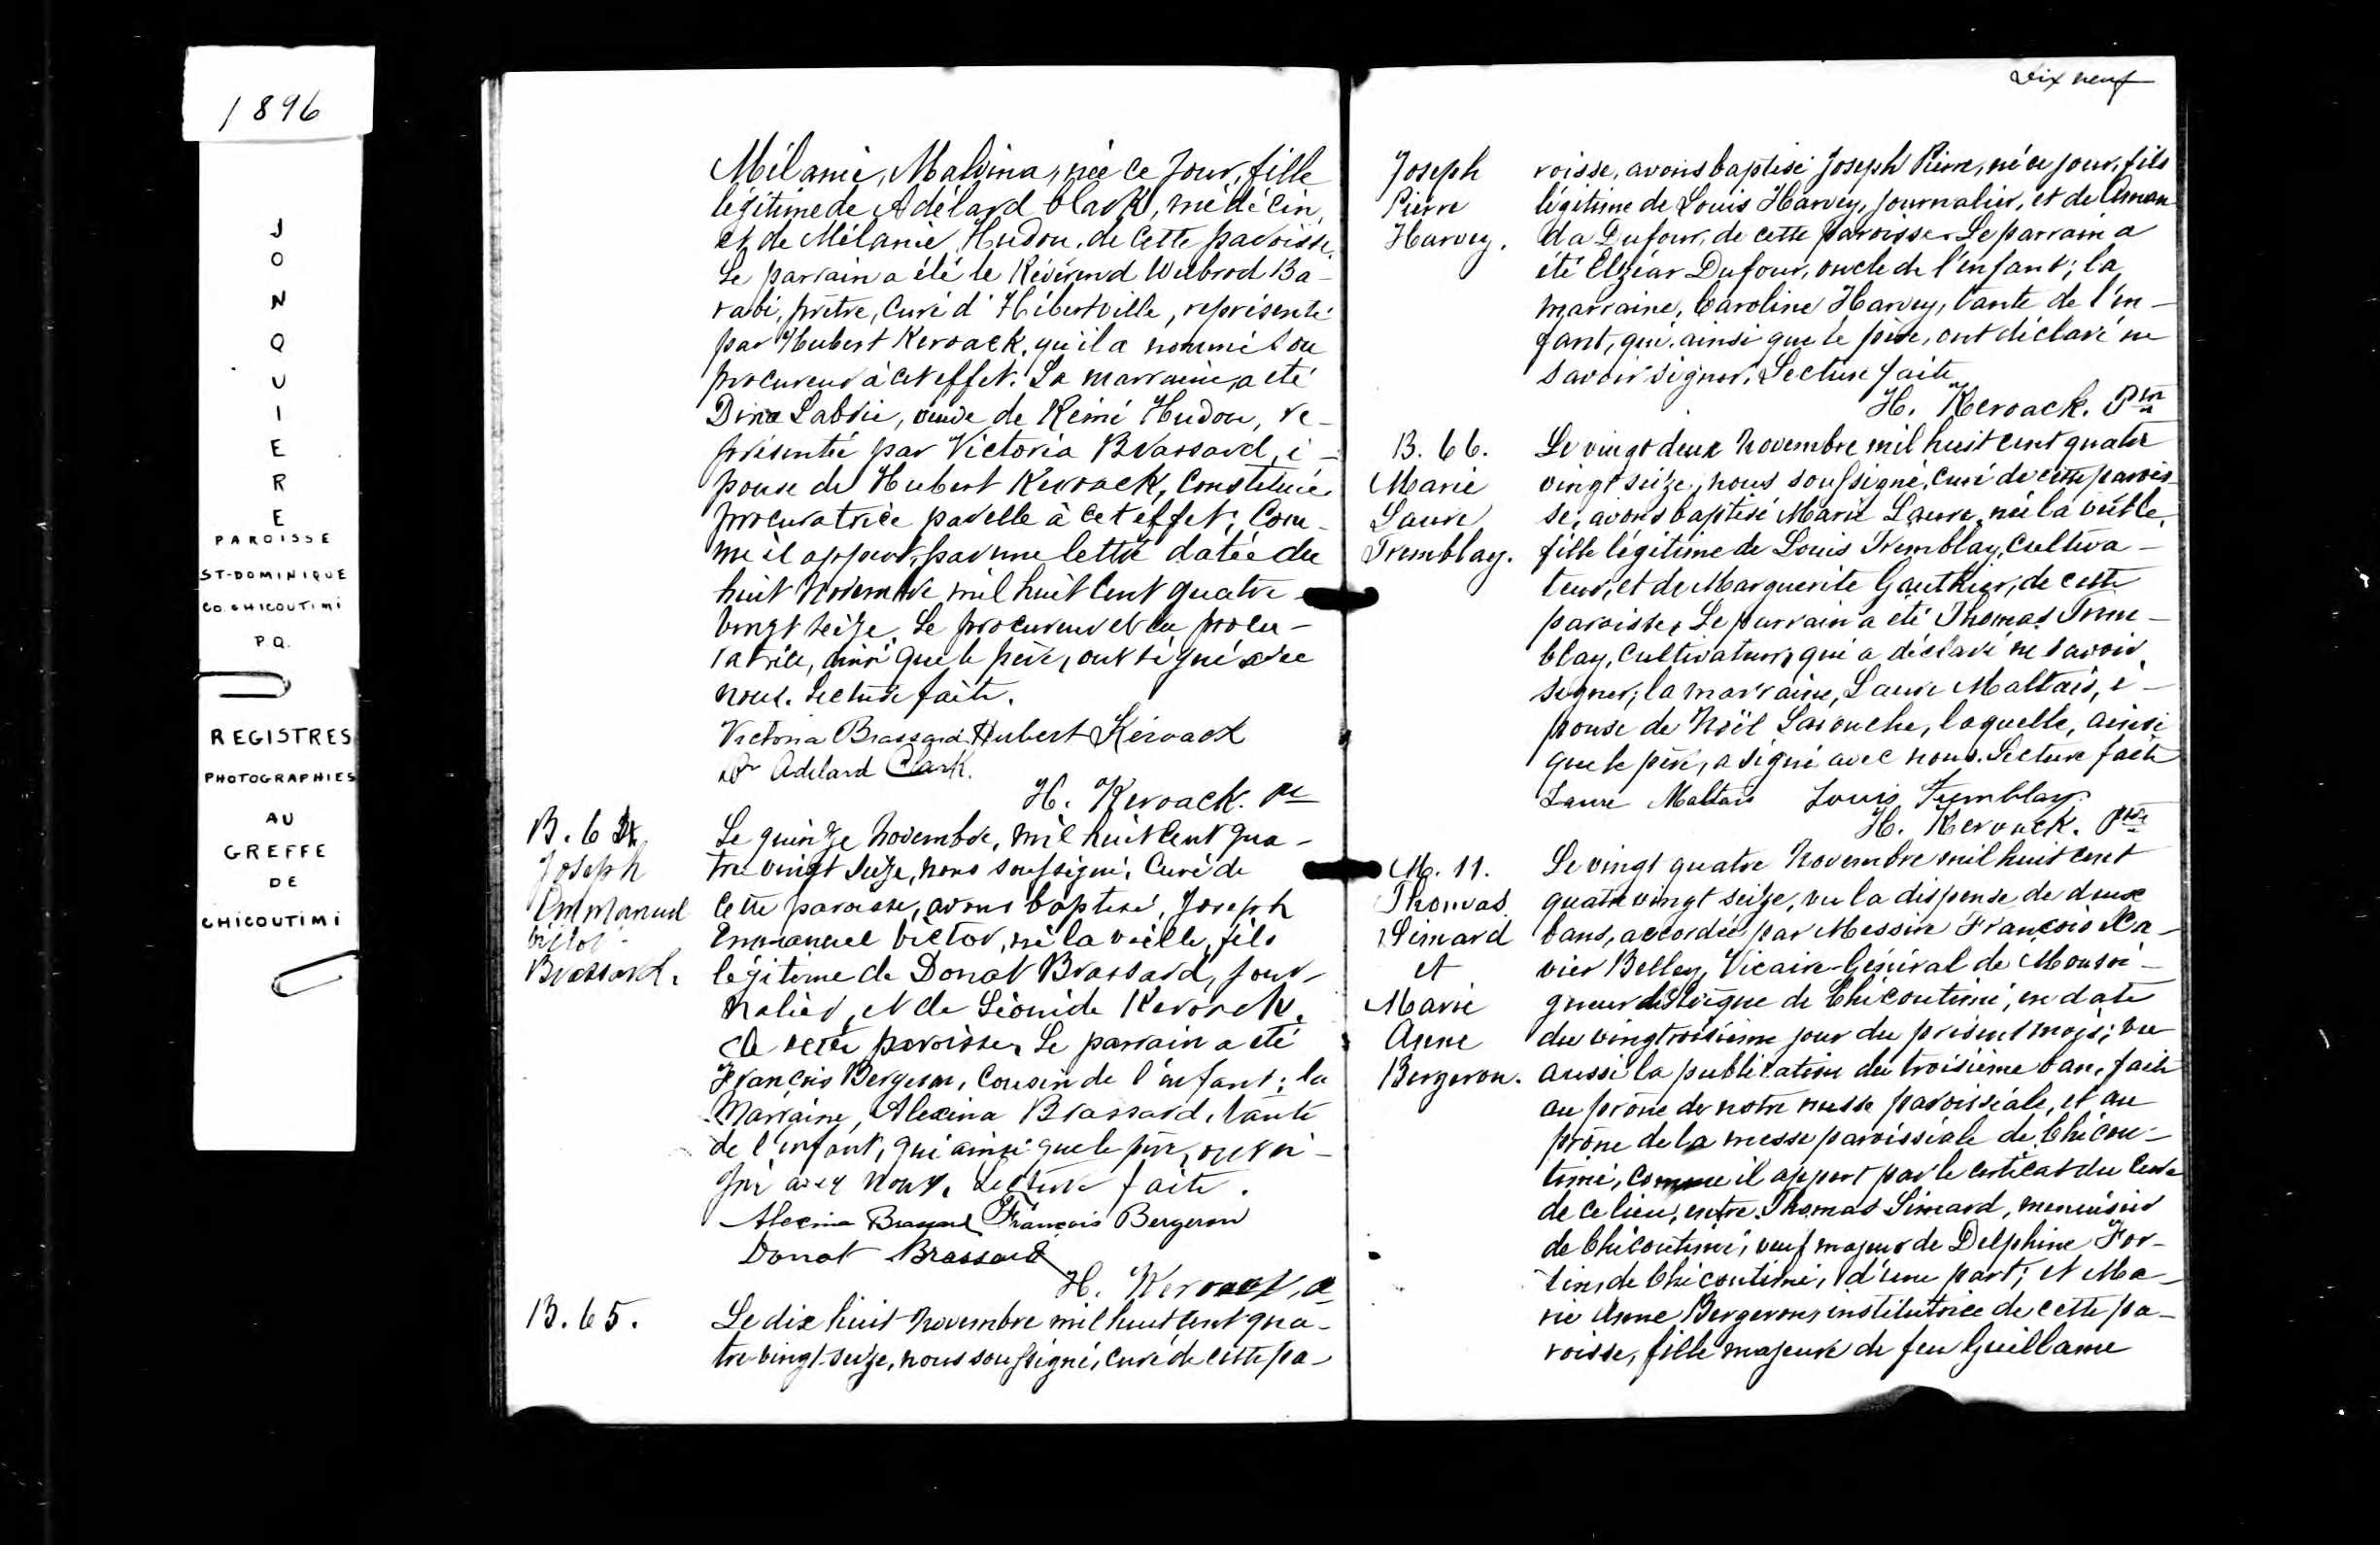 1896
JONQUIERE
PAROISSE
ST-DOMINIQUE
CO. CHICOUTIMI
P.Q.
REGISTRES
PHOTOGRAPHIES
AU
GREFFE
DE
CHICOUTIMI
Mélanie, Malvina, née ce jour, fille
légitime de Adélard Clark, médécin,
et de Mélanie Hudon, de cette paroisse,
Le parrain a été le Révérend Wilbrod Ba-
rabé, prêtre, curé d'Hébertville, représenté
par Hubert Keroack, qu'il a nommé son
procureur à cet effet. La marraine, a été
Dina Labrie, veuve de Rémi Hudon, re-
présentée par Victoria Brassard, é-
pouse de Hubert Keroack, constituée
procuratrice par elle à cet effet; Com-
me il appert, par une lettre datée du
huit Novembre mil huit cent quatre-
vingt seize. Le procureur et la procu-
ratrice, ainsi que le père, ont signé avec
nous. Lecture faite.
Victoria Brassard Hubert Kéroack
Dr Adélard Clark.
H. Keroack. Ptre
B. 64
Joseph
Emmanuel
Victor
Brassard.
Le quinze Novembre, mil huit cent qua-
tre vingt seize, nous soussigné, Curé de
cette paroisse, avons baptisé, Joseph
Emmanuel Victor, né la veille, fils
légitime de Donat Brassard, jour-
nalier, et de Léonide Keroack,
de cette paroisse, Le parrain a été
François Bergeron, Cousin de l'enfant; la
Marraine, Alexina Brassard, tante
de l'enfant, qui ainsi que le père, ont si-
gné avec nous. Lecture faite.
Alexina Brassard François Bergeron
Donat Brassard
H. Keroack, Ptre
B. 65.
Le dix huit Novembre mil huit cent qua-
tre-vingt-seize, nous soussigné, curé de cette pa-
Dix neuf
Joseph
Pierre
Harvey.
roisse, avons baptisé Joseph Pierre, né ce jour, fils
légitime de Louis Harvey, journalier, et de Aman
da Dufour, de cette paroisse. Le parrain a
été Elzéar Dufour, oncle de l'enfant; la
marraine, Caroline Harvey, tante de l'en-
fant, qui, ainsi que le père, ont déclaré ne
savoir signer. Lecture faite
H. Keroack. Ptre
B. 66.
Marie
Laure
Tremblay.
Le vingt deux Novembre mil huit cent quatre
vingt seize, nous soussigné, curé de cette parois
se, avons baptisé Marie Laure, née la veille,
fille légitime de Louis Tremblay, Cultiva-
teur, et de Marguerite Gauthier, de cette
paroisse, Le parrain a été Thomas Trem-
blay, Cultivateur, qui a déclaré ne savoir
signer; la marraine, Laure Maltais, é-
pouse de Noël Larouche, laquelle, ainsi
que le père, a signé avec nous. Lecture faite
Laure Maltais Louis Tremblay.
H. Keroack. Ptre
M. 11.
Thomas
Simard
et
Marie
Anne
Bergeron.
Le vingt quatre Novembre mil huit cent
quatre vingt seize, vu la dispense de deux
bans, accordée par Messire François Xa-
vier Belley, Vicaire-Général de Monsei-
gneur l'Evêque de Chicoutimi, en date
du vingtroisième jour du présent mois; vu
aussi la publication du troisième ban, faite
au prône de notre messe paroissiale, et au
prône de la messe paroissiale de Chicou-
timi, comme il appert par le certicat du Curé
de ce lieu, entre Thomas Simard, menuisier
de Chicoutimi, veuf majeur de Delphine For-
tin, de Chicoutimi, d'une part; et Ma-
rie Anne Bergeron, institutrice de cette pa-
roisse, fille majeure de feu Guillame